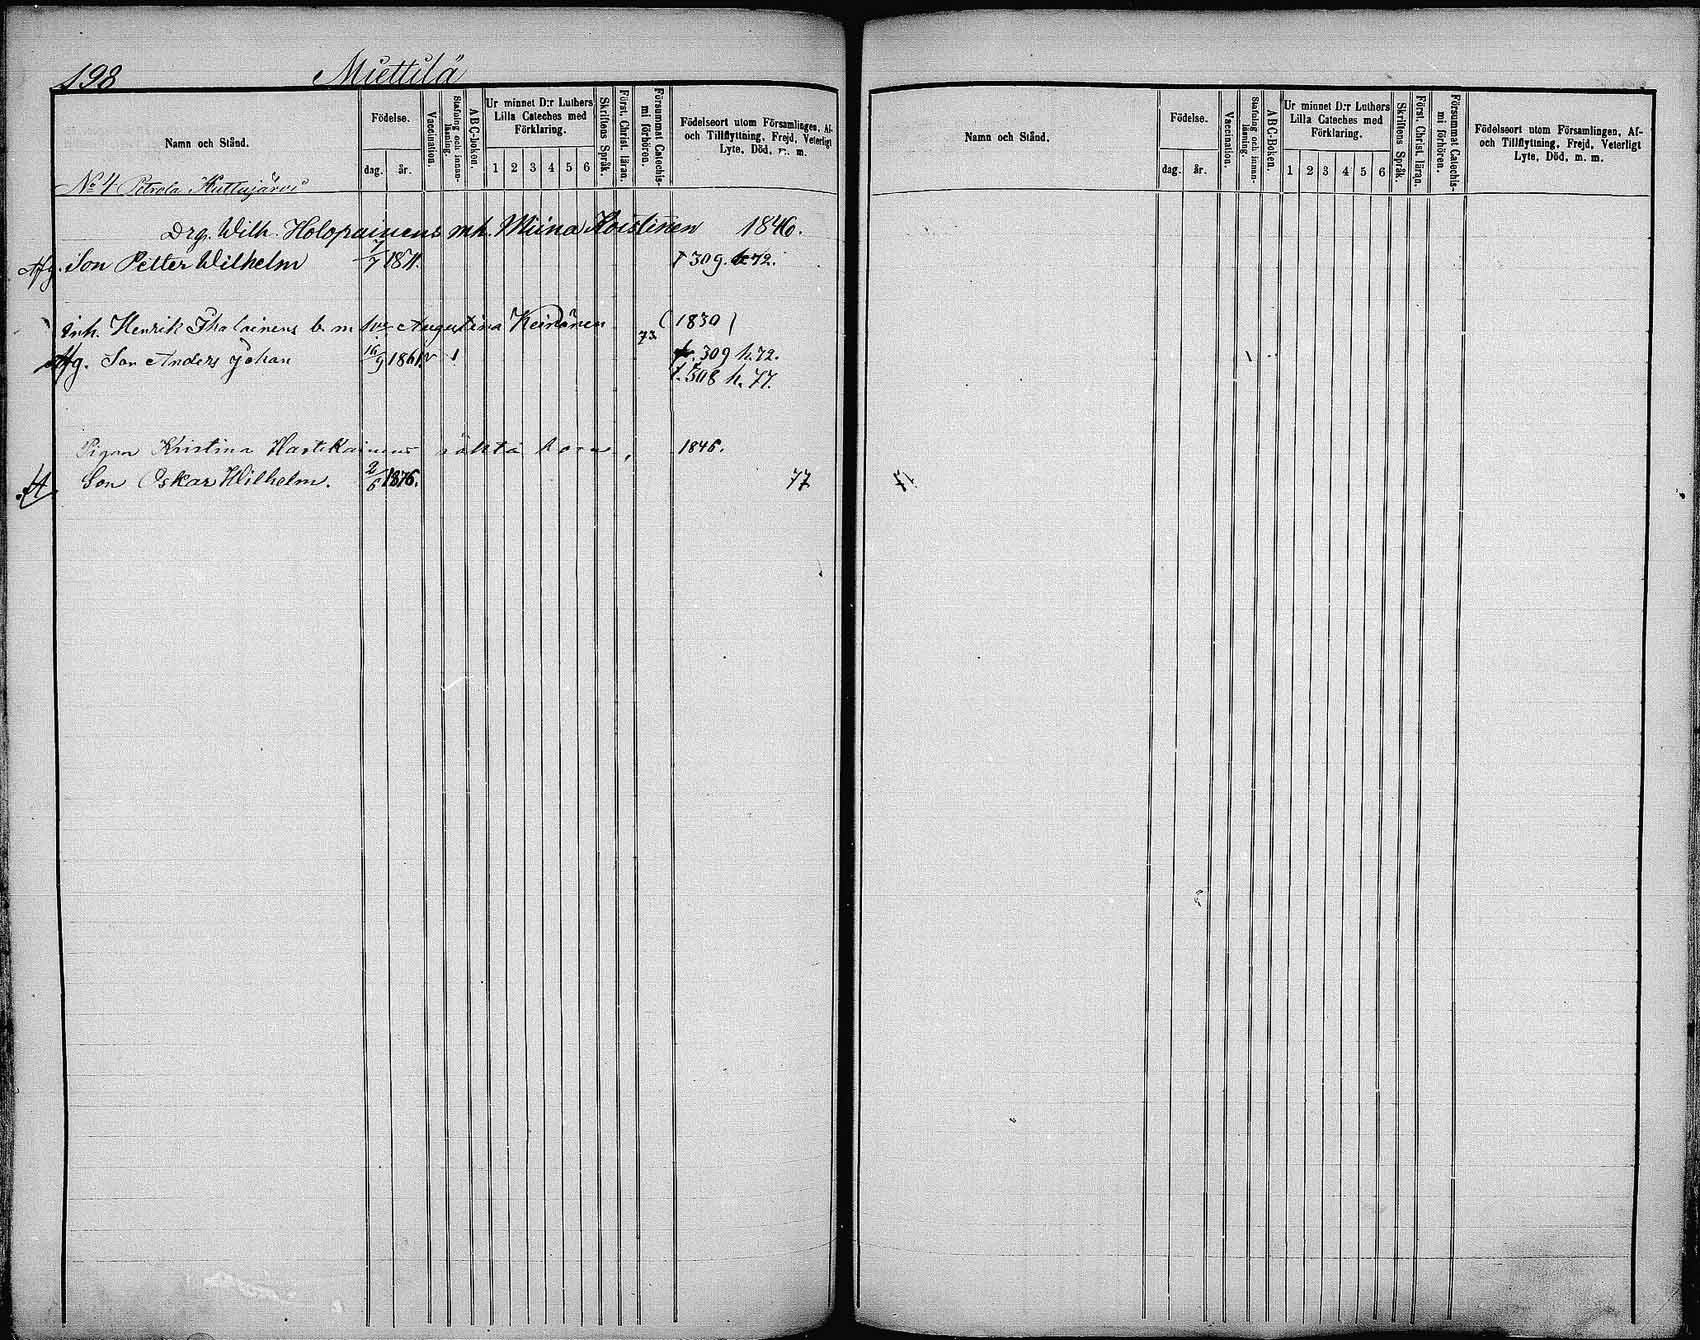 198 Miettilä
Namn och Stånd.
Födelse.
dag. år.
Vaccination.
Stafning och innan-läsning.
A B C-boken.
Ur minnet D:r Luthers
Lilla Cateches med
Förklaring.
1 2 3 4 5 6
Skriftens Språk.
Först. Christ. läran.
Försummat Catechis-
mi förhören.
Födelseort utom Församlingen, Af-
och Tillflyttning, Frejd, Veterligt
Lyte, Död, m. m.
No 4 Petrola
Drg. Wilh. Holopainens mh. Miina Koistinen 1840.
Afg. Son Petter Wilhelm 7/7 1871. f 309. k. 72.
inh. Henrik b. m Augustina Keinänen (1830)
73.
Afg. Son Anders Johan 16/9 1861. v 1 309 k. 72.
f. 308 k. 77.
Pigan Kristina äkta barn, 1846.
Son Oskar Wilhelm. 2/6 1876. 77
Namn och Stånd.
Födelse.
dag. år.
Vaccination.
Stafning och innan-
läsning.
A B C-Boken.
Ur minnet D:r Luthers
Lilla Cateches med
Förklaring.
1 2 3 4 5 6
Skriftens Språk.
Först. Christ. läran.
Försummat Catechis-
mi förhören.
Födelseort utom Församlingen, Af-
och Tillflyttning, Frejd, Veterligt
Lyte, Död, m. m.